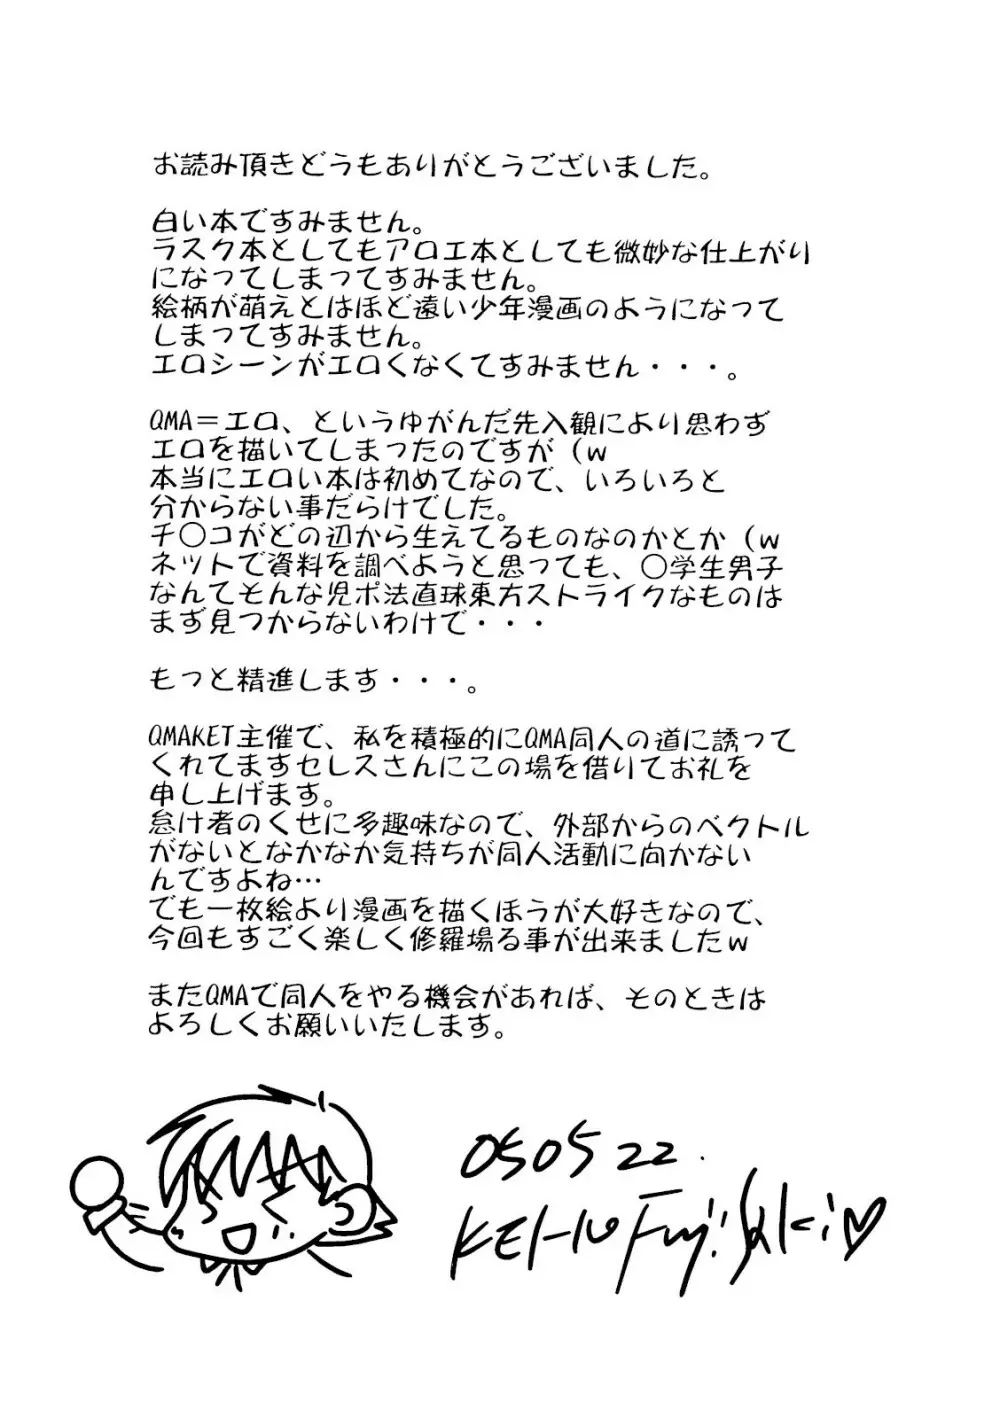 お読み頂きどうもありがとうございました。
白い本ですみません。
ラスク本としてもアロエ本としても微妙な仕上がり
になってしまってすみません。
絵柄が萌えとはほど遠い少年漫画のようになって
しまってすみません。
エロシーンがエロくなくてすみません・・・。
QMA＝エロ、というゆがんだ先入観により思わず
エロを描いてしまったのですが（w
本当にエロい本は初めてなので、いろいろと
分からない事だらけでした。
チ〇コがどの辺から生えてるものなのかとか（w
ネットで資料を調べようと思っても、〇学生男子
なんてそんな児ポ法直球東方ストライクなものは
まず見つからないわけで・・・
もっと精進します・・・。
QMAKET主催で、私を積極的にQMA同人の道に誘って
くれてますセレスさんにこの場を借りてお礼を
申し上げます。
怠け者のくせに多趣味なので、外部からのベクトル
がないとなかなか気持ちが同人活動に向かない
んですよね…
でも一枚絵より漫画を描くほうが大好きなので、
今回もすごく楽しく修羅場る事が出来ましたｗ
またQMAで同人をやる機会があれば、そのときは
よろしくお願いいたします。
050522.
Fujisaki♡